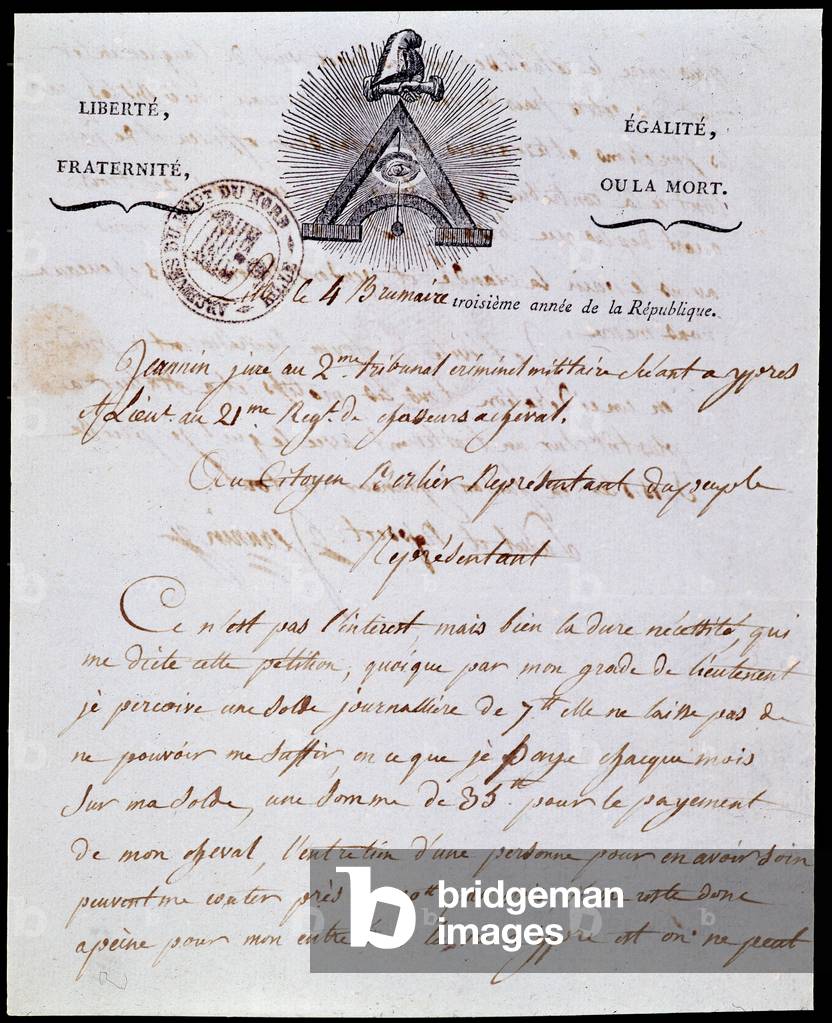 LIBERTÉ,
FRATERNITÉ,
ÉGALITÉ,
OU LA MORT.
ARCHIVES DU DEPT DU NORD LILLE
le 4 Brumaire troisième année de la République.
Jeannin juré au 2me. tribunal criminel militaire séant a ypres
et Lieut. au 21me Regt. de chasseurs a cheval.
Au Citoyen Berlier Représentant du peuple
Représentant
Ce n'est pas l'interest, mais bien la dure nécessité, qui
me dicte cette pétition, quoique par mon grade de lieutenent
je perçoive une solde journalliere de 7tt elle ne laisse pas de
ne pouvoir me suffir, en ce que je paye chacque mois
sur ma solde, une somme de 35tt pour le payement
de mon cheval, l'entretien d'une personne pour en avoir soin
peuvent me couter près reste donc
apeine pour mon ypre est on ne peut
b bridgeman
images